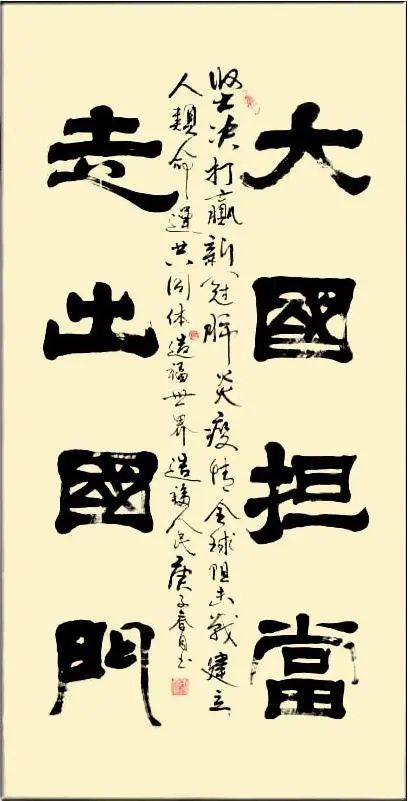 大國担當
坚决打赢新冠肺炎疫情全球阻击战建立
人類命運共同体造福世界造福人民庚子春月书
走出國門